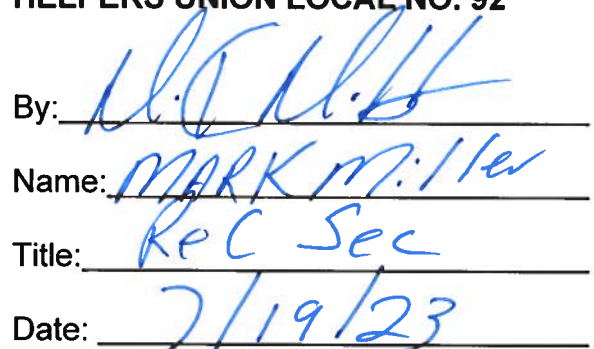 HELPERS UNION LOCAL NO. 92
By:
Name: MARK Miller
Title: Rec Sec
Date: 7/19/23